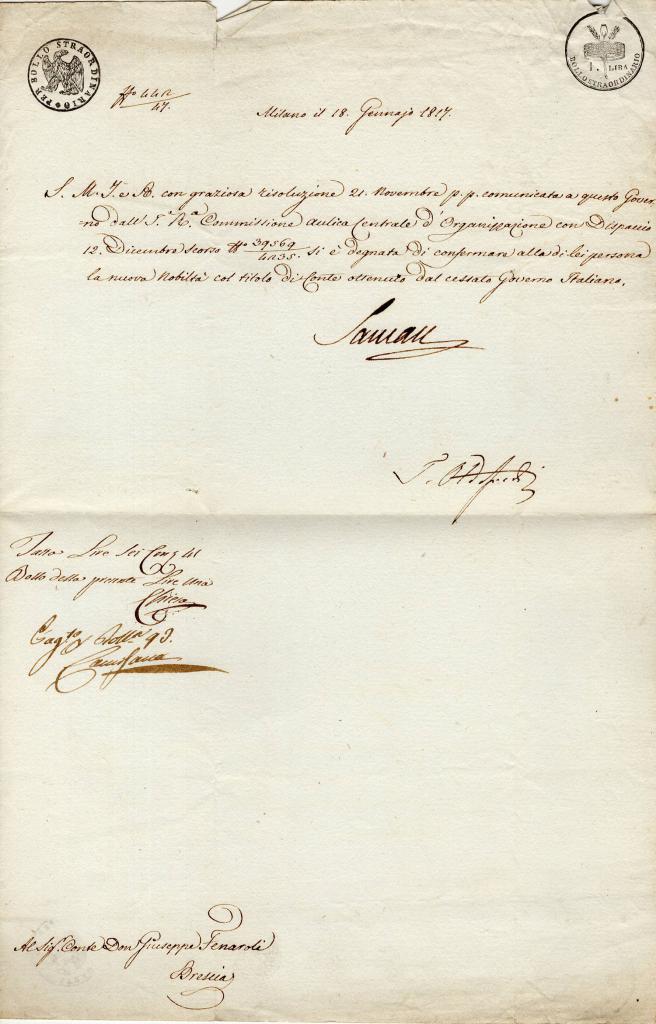 PER BOLLO STRAORDINARIO
1. LIRA
BOLLO STRAORDINARIO
N.o 442
47.
Milano il 18. Gennajo 1817.
S. M. I. e A. con graziosa risoluzione 21. Novembre p. p. comunicata a questo Gover=
=no dall' I. R.a Commissione Aulica Centrale d'Organizzazione con Dispaccio
12. Dicembre scorso N.o 39569/4235. si è degnata di confermare alla di lei persona
la nuova Nobiltà col titolo di Conte ottenuto dal cessato Governo Italiano.
Saurau
Tassa Lire Sei Cent 41
Bollo della presente Lire Una
Al Sig.r Conte Don Giuseppe Fenaroli
Brescia